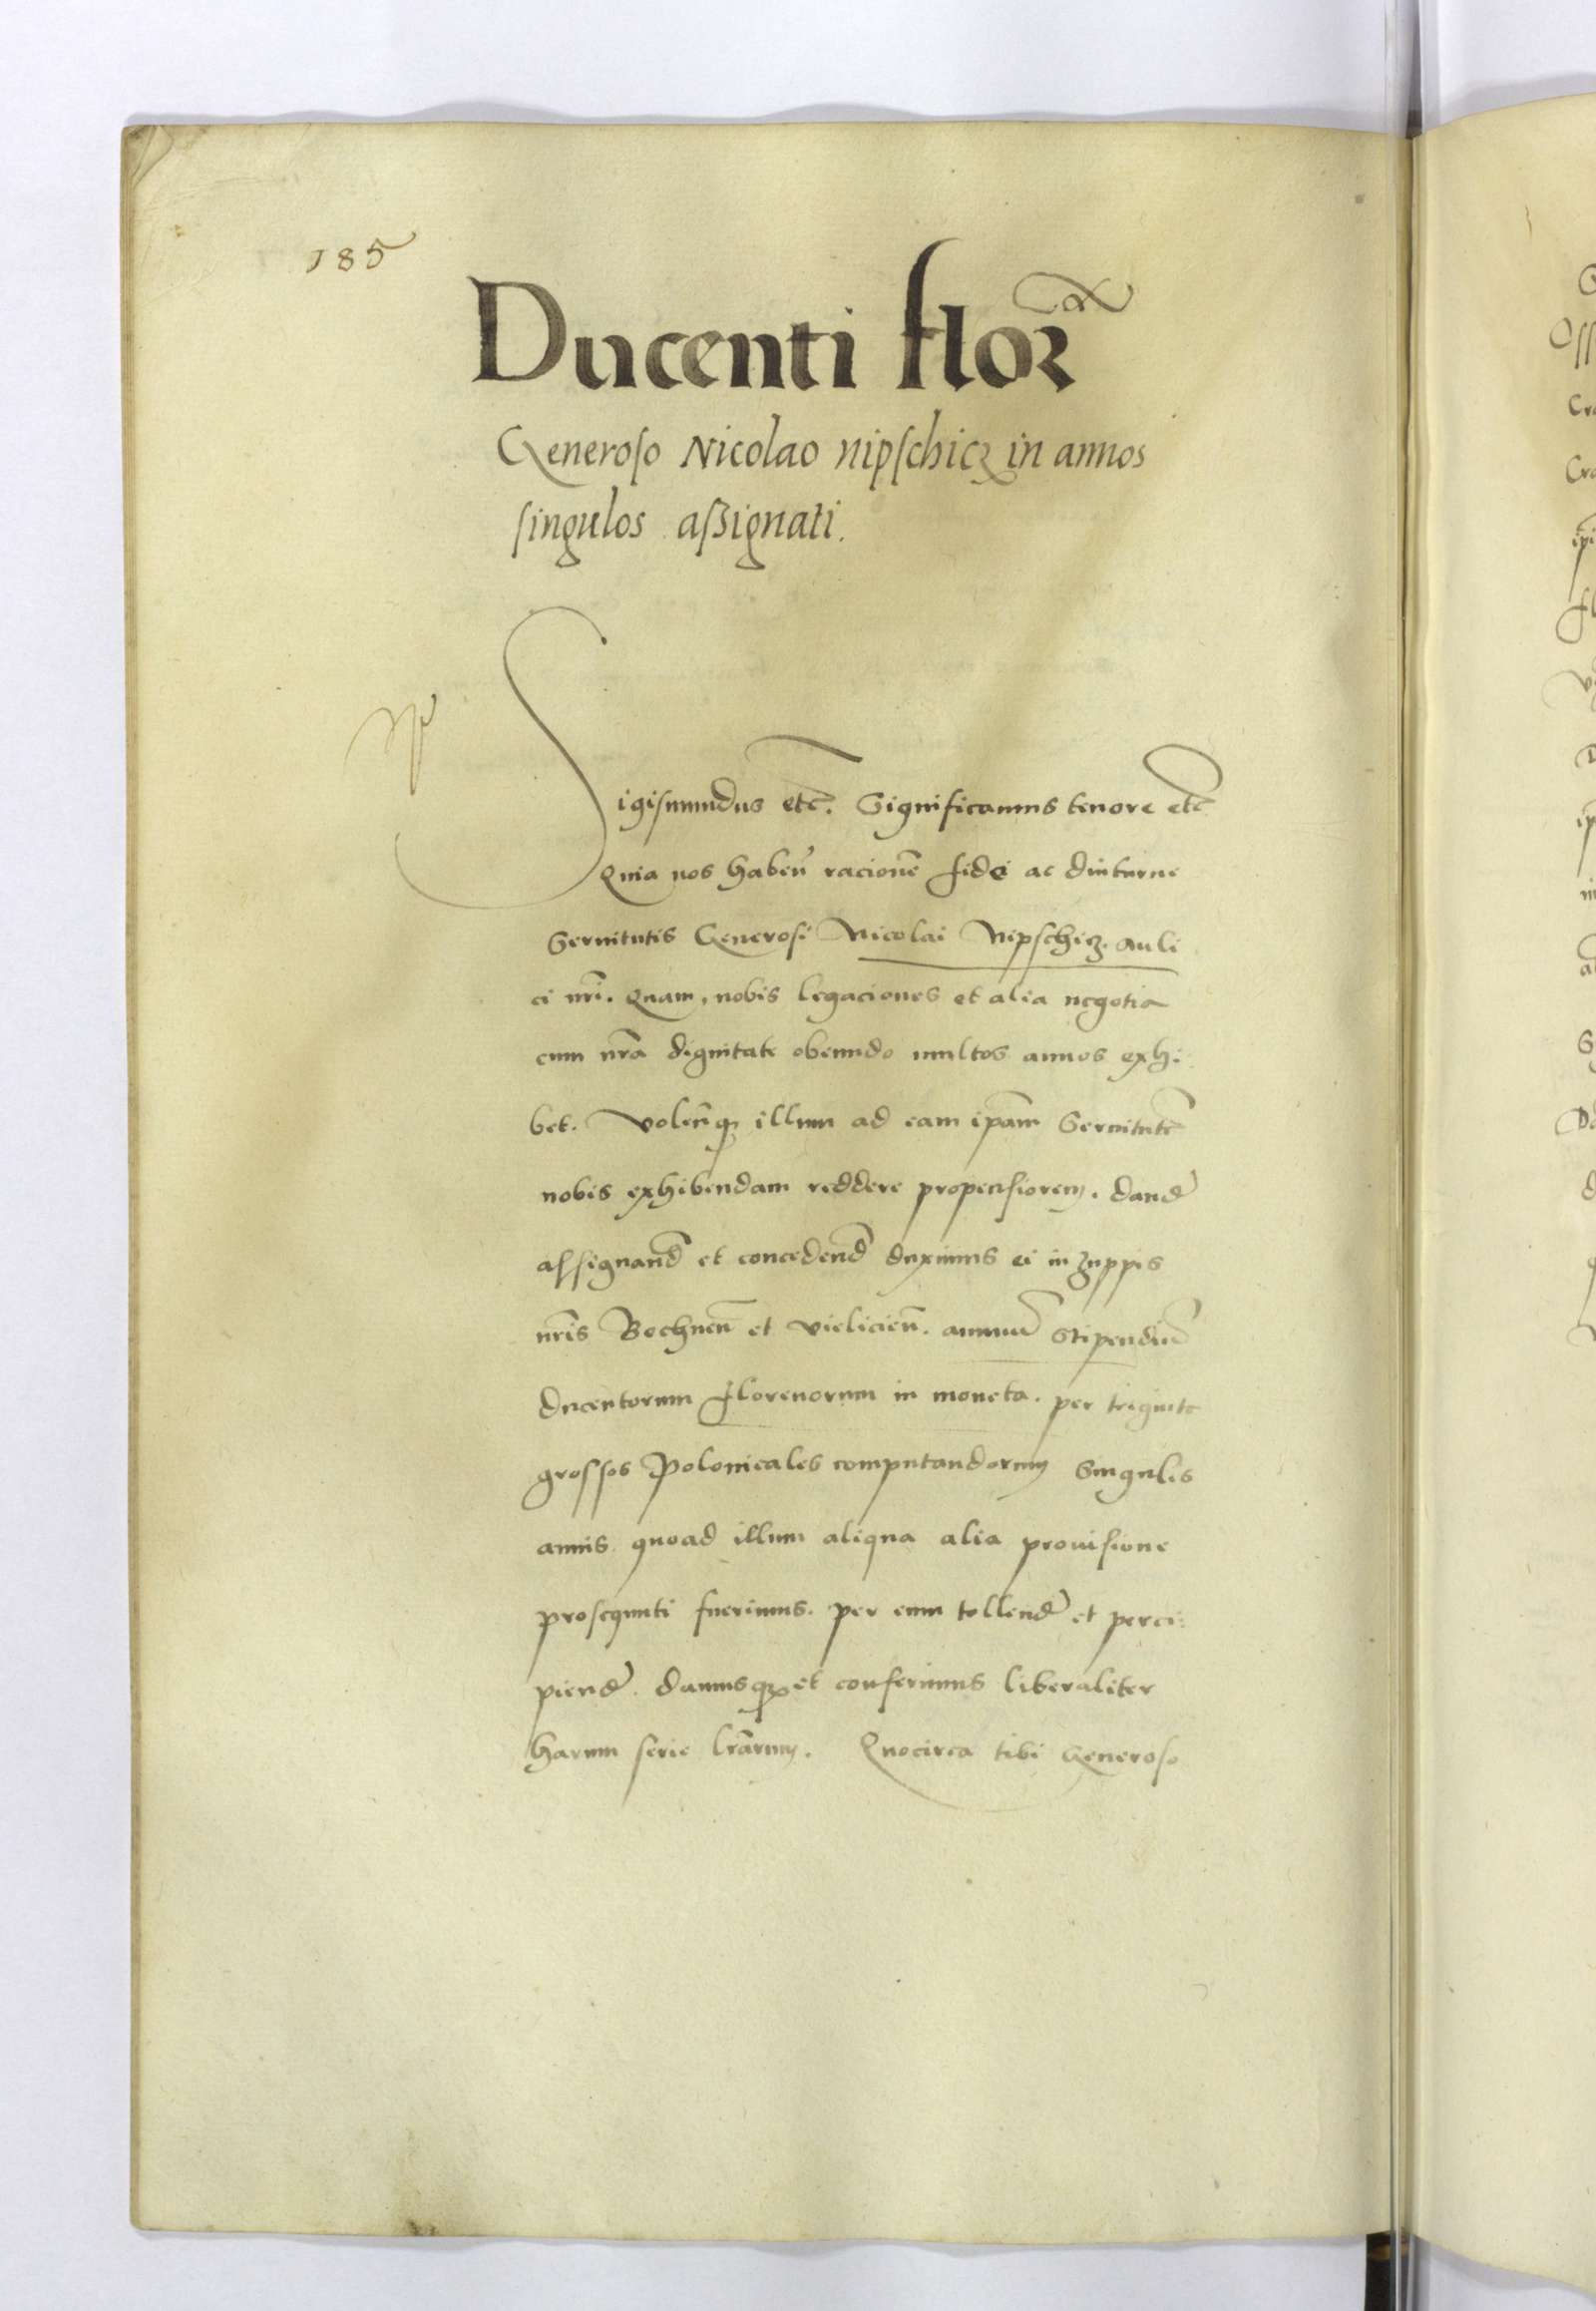 185
Ducenti flor̃
Generoso Nicolao nipschicz in annos
singulos assignati.
Sigismundus etc̃. Significamus tenore etc̃
Quia nos habeñ racionẽ fidei ac diuturne
Seruitutis Generosi Nicolai Nipschicz. auli
ci nr̃i. Quam, nobis legaciones et alia negotia
cum nr̃a dignitate obeundo multos annos exhi
bet. Volen̄q illum ad eam ip̃am Seruitutẽ
nobis exhibendam reddere propensiorem. dand̃
assignand̃ et concedend̃ duximus ei in zuppis
nr̃is Bochneñ et vielicieñ. annuũ Stipendiũ
ducentorum florenorum in moneta. per triginta
grossos Polonicales computandorum Singulis
annis quoad illum aliqua alia prouisione
prosequuti fuerimus. per eum tollend̃ et perci
piend̃. damusq et conferimus liberaliter
harum serie lr̃arum. Quocirca tibi Generoso